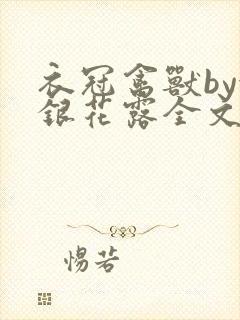 衣冠禽獸by
銀花露全文
惕若